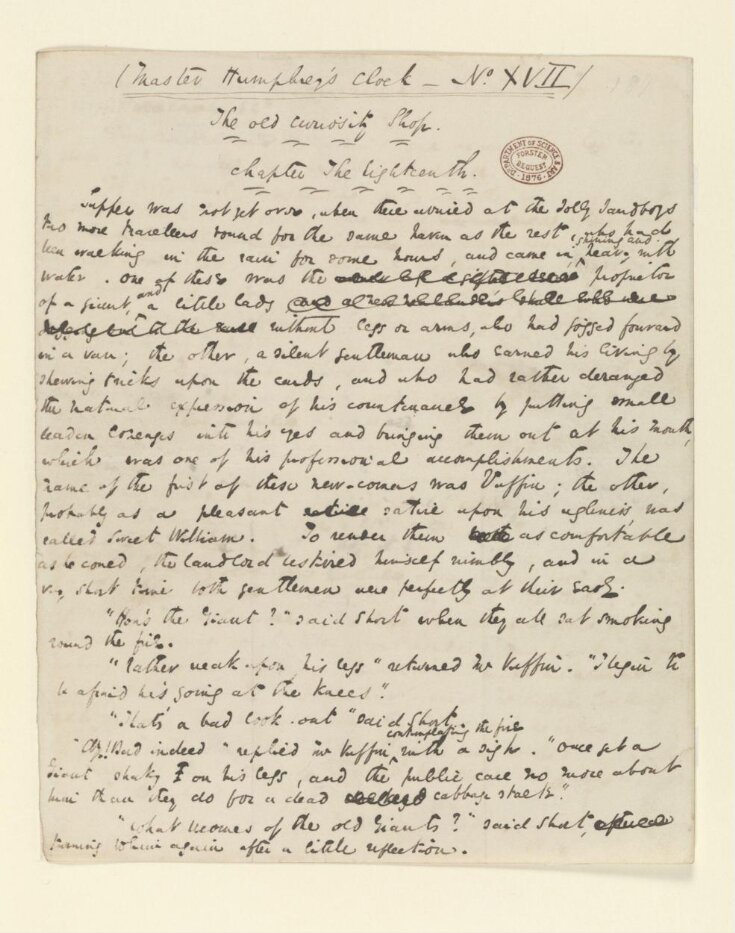 (Master Humphrey's Clock — No XVII)
The old Curiosity Shop.
Chapter The Eighteenth.
DEPARTMENT OF SCIENCE & ART
FORSTER
BEQUEST
1876
Supper was not yet over, when there arrived at the Jolly Sandboys
two more travellers bound for the same haven as the rest, who had
been walking in the rain for some hours, and came in shining and heavy with
water. One of these was the proprietor
of a giant, and a little lady
without legs or arms, who had jogged forward
in a van; the other, a silent gentleman who earned his living by
shewing tricks upon the cards, and who had rather deranged
the natural expression of his countenance by putting small
leaden lozenges into his eyes and bringing them out at his mouth,
which was one of his professional accomplishments. The
name of the first of these new-comers was Vuffin; the other,
probably as a pleasant satire upon his ugliness, was
called Sweet William. To render them as comfortable
as he could, the landlord bestirred himself nimbly, and in a
very short time both gentlemen were perfectly at their ease.
"How's the Giant?" said Short when they all sat smoking
round the fire.
"Rather weak upon his legs" returned Mr Vuffin. "I begin to
be afraid he's going at the knees".
"That's a bad look-out" said Short
"Ay! Bad indeed" replied Mr Vuffin, contemplating the fire with a sigh. "Once get a
Giant shaky on his legs, and the public care no more about
him than they do for a dead cabbage stalk".
"What becomes of the old Giants?" said Short,
turning to him again after a little reflection.